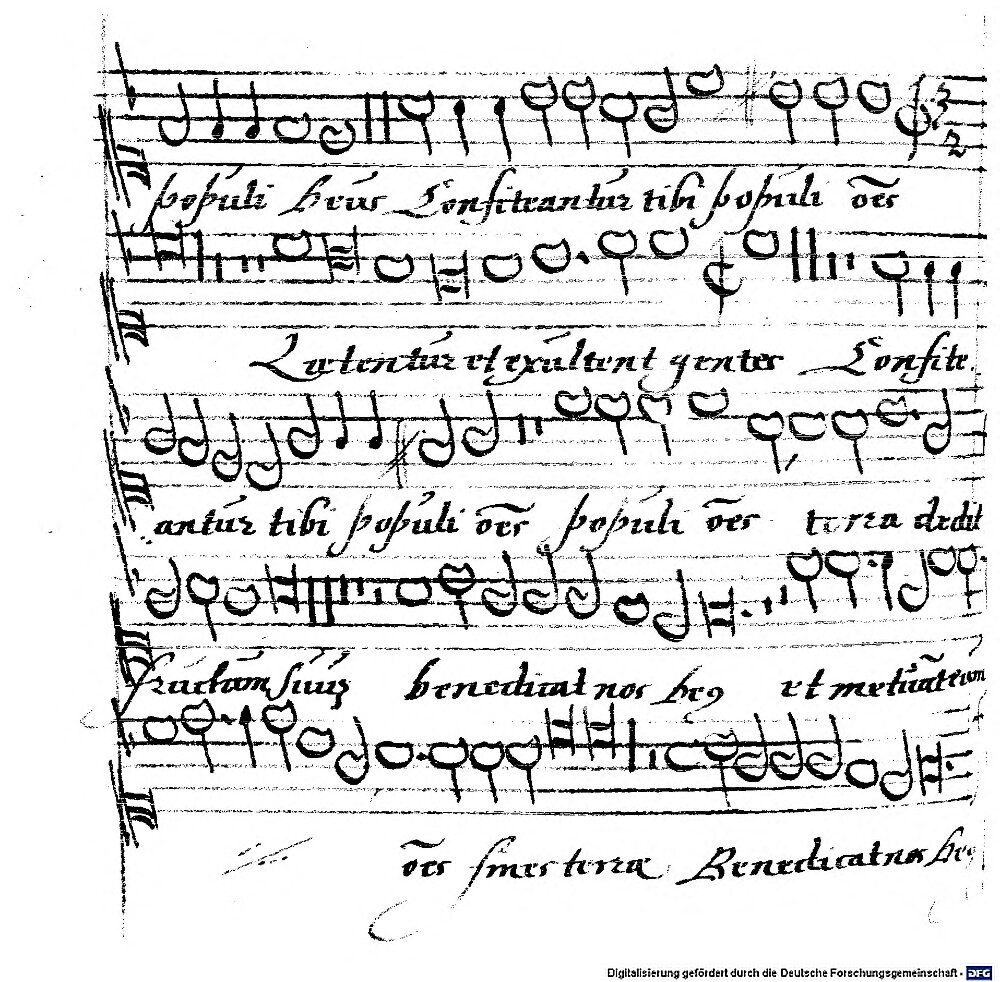 populi Deus Confiteantur tibi populi o͞es
Lætentur et exultent gentes Confite
antur tibi populi o͞es populi o͞es terra dedit
fructum suuȝ benedicat nos de9 et metua͞t eum
o͞es fines terræ Benedicat nos de9
Digitalisierung gefördert durch die Deutsche Forschungsgemeinschaft - DFG